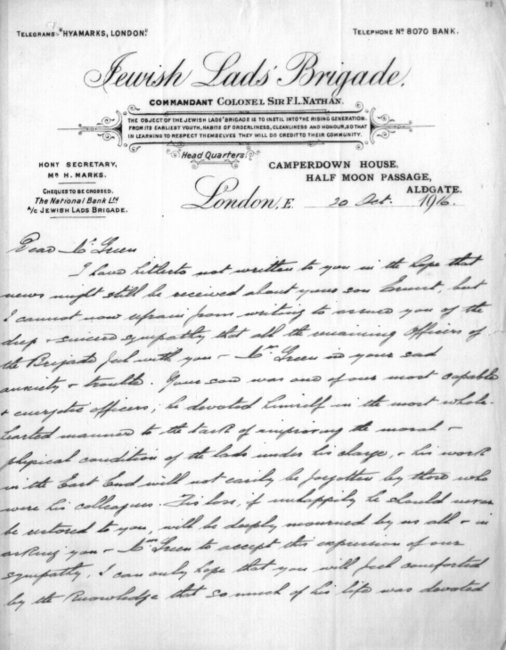 TELEGRAMS "HYAMARKS, LONDON".
TELEPHONE No 8070 BANK.
Jewish Lads' Brigade.
COMMANDANT COLONEL SIR F. L. NATHAN.
THE OBJECT OF THE JEWISH LADS' BRIGADE IS TO INSTIL INTO THE RISING GENERATION,
FROM ITS EARLIEST YOUTH, HABITS OF ORDERLINESS, CLEANLINESS AND HONOUR, SO THAT
IN LEARNING TO RESPECT THEMSELVES THEY WILL DO CREDIT TO THEIR COMMUNITY.
Head Quarters:
HONY SECRETARY,
MR H. MARKS.
CHEQUES TO BE CROSSED.
The National Bank Ltd
A/C JEWISH LADS BRIGADE.
CAMPERDOWN HOUSE,
HALF MOON PASSAGE,
ALDGATE.
London, E. 20 Oct. 1916.
Dear Mr Green
I have hitherto not written to you in the hope that
news might still be received about your son Ernest, but
I cannot now refrain from writing to assure you of the
deep & sincere sympathy that all the remaining officers of
the Brigade feel with you & Mrs Green in your sad
anxiety & trouble. Your son was one of our most capable
& energetic officers; he devoted himself in the most whole-
hearted manner to the task of improving the moral &
physical condition of the lads under his charge, & his work
in the East End will not easily be forgotten by those who
were his colleagues. His loss, if unhappily he should never
be restored to you, will be deeply mourned by us all & in
asking you & Mrs Green to accept this expression of our
sympathy, I can only hope that you will feel comforted
by the knowledge that so much of his life was devoted